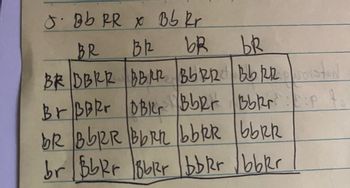 5. Bb RR x Bb Rr
BR BR bR bR
BR BBRR BBRR BbRR BbRR
Br BBRr BBRr BbRr BbRr
bR BbRR BbRR bbRR bbRR
br BbRr BbRr bbRr bbRr